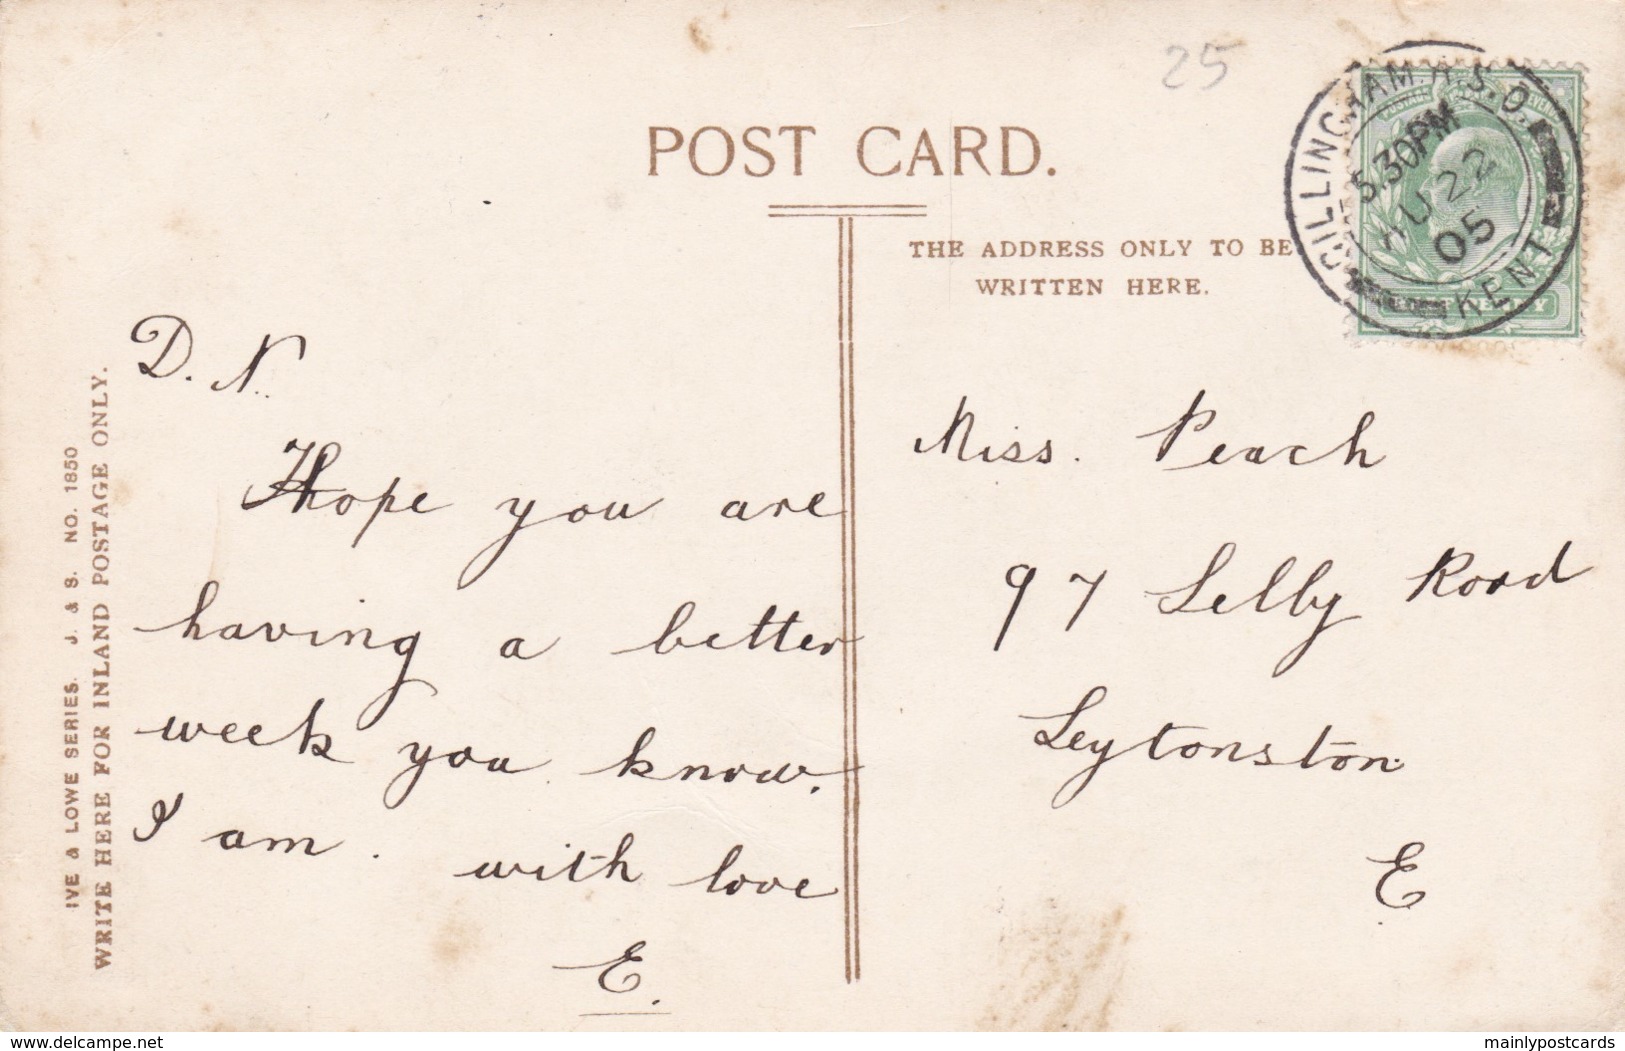 25
POST CARD.
THE ADDRESS ONLY TO BE
WRITTEN HERE.
GILLINGHAM. R.S.O.
5.30PM
AU 22
05
KENT
IVE & LOWE SERIES. J. & S. NO. 1850
WRITE HERE FOR INLAND POSTAGE ONLY.
D. N.
Hope you are
having a better
week you know.
I am. with love
E.
Miss. Peach
97 Selby Road
Leytonston
E
www.delcampe.net
mainlypostcards